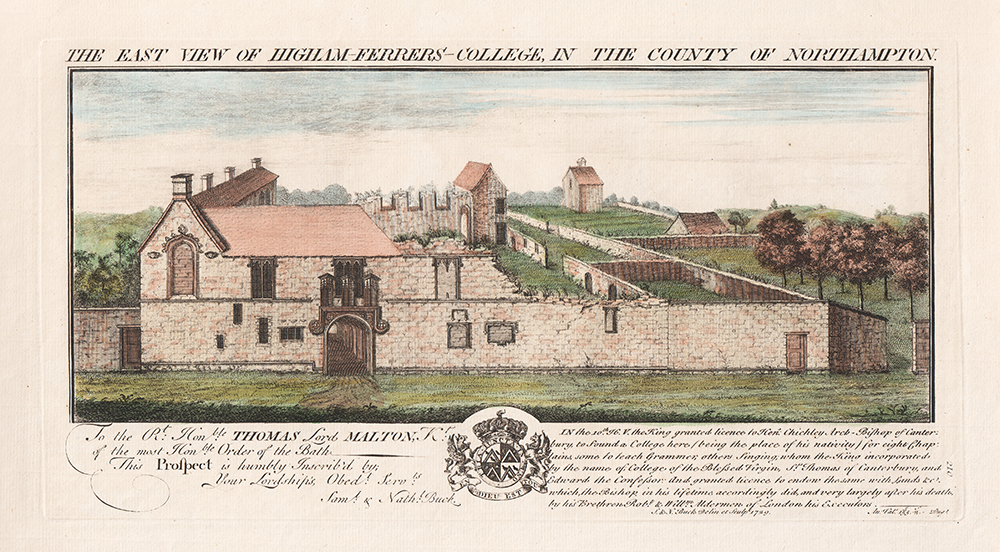 THE EAST VIEW OF HIGHAM-FERRERS-COLLEGE, IN THE COUNTY OF NORTHAMPTON.
To the Rt. Honble. THOMAS Lord MALTON, Kt.
of the most Honble. Order of the Bath.
This Prospect is humbly Inscrib'd by,
Your Lordship's, Obedt. Servts.
Saml. & Nathl. Buck.
DIEU EST
IN the 10th. H. V. the King granted licence to Hen. Chichley, Arch-Bishop of Canter-
bury, to found a College here (being the place of his nativity) for eight Chap-
lains, some to teach Grammer, others Singing, whom the King incorporated
by the name of College of the Blessed Virgin, St. Thomas of Canterbury, and
Edward the Confessor and granted licence to endow the same with Lands &c.
which, the Bishop, in his lifetime accordingly did, and very largely after his death,
by his Brethren Robt. & Willm. Aldermen of London his Executors.
S. & N. Buck Delin et Sculp. 1729.